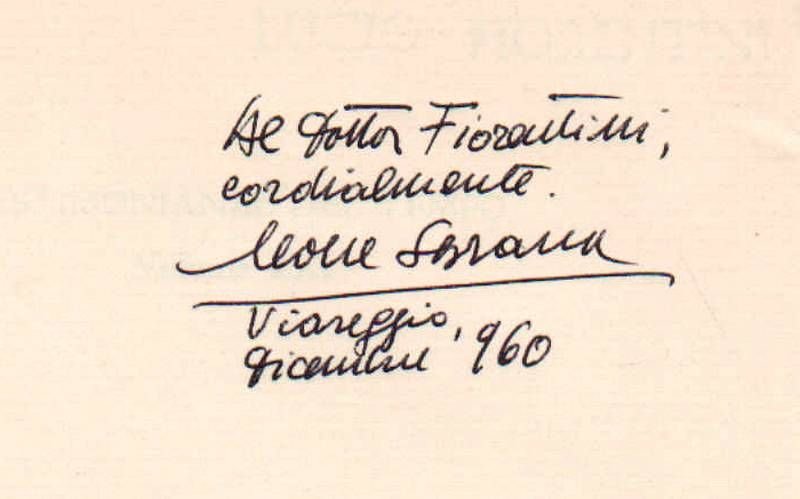 Al Dottor Fiorentini,
cordialmente.
Leone Sbrana
Viareggio,
Dicembre '960